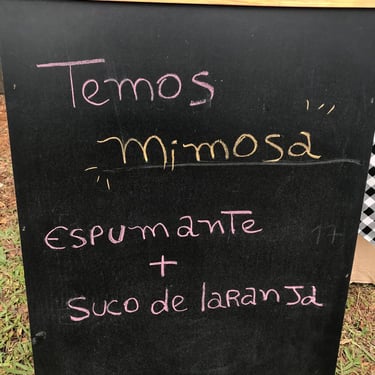 Temos
mimosa
ESPUmANTE
+
SUCO de laRANJa